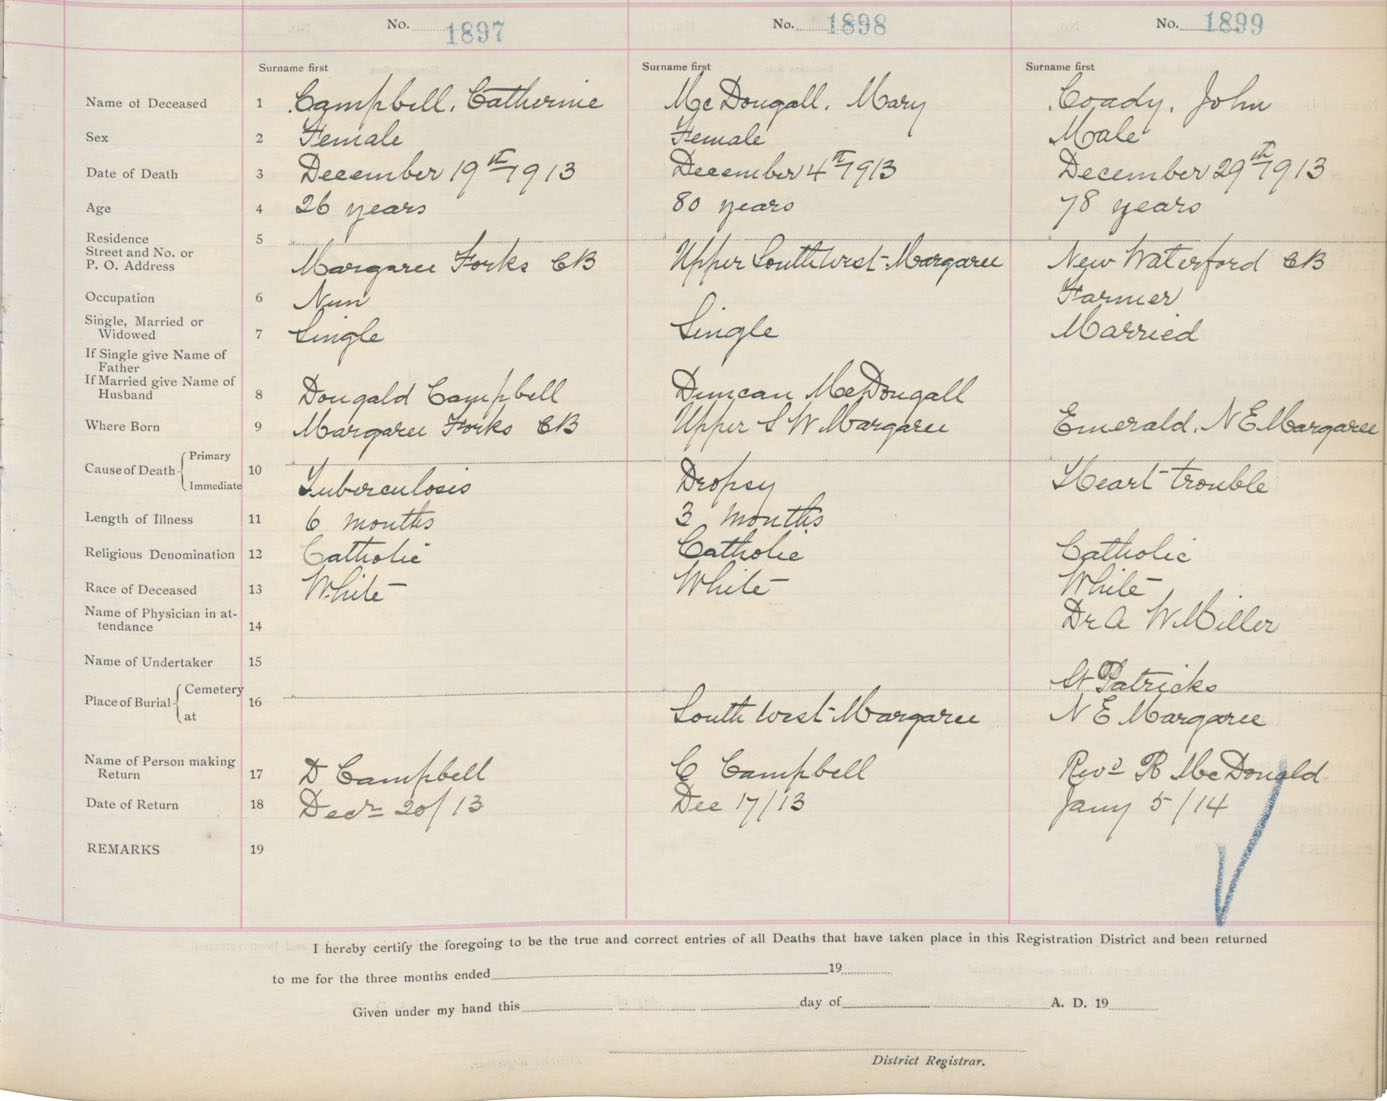 No. 1897 No. 1898 No. 1899
Surname first Surname first Surname first
Name of Deceased 1 Campbell, Catherine McDougall, Mary Coady, John
Sex 2 Female Female Male
Date of Death 3 December 19th 1913 December 4th 1913 December 29th 1913
Age 4 26 years 80 years 78 years
Residence 5
Street and No. or
P. O. Address Margaree Forks CB Upper South West Margaree New Waterford CB
Occupation 6 Nun Farmer
Single, Married or
Widowed 7 Single Single Married
If Single give Name of
Father
If Married give Name of
Husband 8 Dougald Campbell Duncan McDougall
Where Born 9 Margaree Forks CB Upper S W Margaree Emerald, N E Margaree
Cause of Death Primary 10
Immediate Tuberculosis Dropsy Heart trouble
Length of Illness 11 6 months 3 months
Religious Denomination 12 Catholic Catholic Catholic
Race of Deceased 13 White White White
Name of Physician in at-
tendance 14 Dr A W Miller
Name of Undertaker 15
Place of Burial Cemetery 16 St Patricks
at South West Margaree N E Margaree
Name of Person making
Return 17 D Campbell C Campbell Revd R McDonald
Date of Return 18 Decr 20/13 Dec 17/13 Jany 5/14
REMARKS 19
I hereby certify the foregoing to be the true and correct entries of all Deaths that have taken place in this Registration District and been returned
to me for the three months ended 19
Given under my hand this day of A. D. 19
District Registrar.